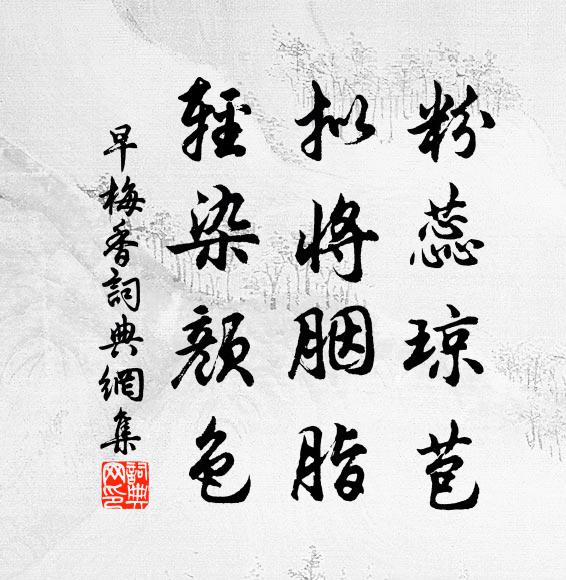 粉蕊琼苞
拟将胭脂
轻染颜色
早梅香詞典網集
詞典网印